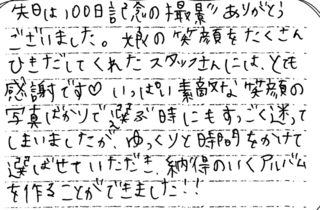 先日は100日記念の撮影ありがとう
ございました。娘の笑顔をたくさん
ひきだしてくれたスタッフさんには、とても
感謝です♡ いっぱい素敵な笑顔の
写真ばかりで選ぶ時にもすっごく迷って
しまいましたが、ゆっくりと時間をかけて
選ばせていただき、納得のいくアルバム
を作ることができました!!